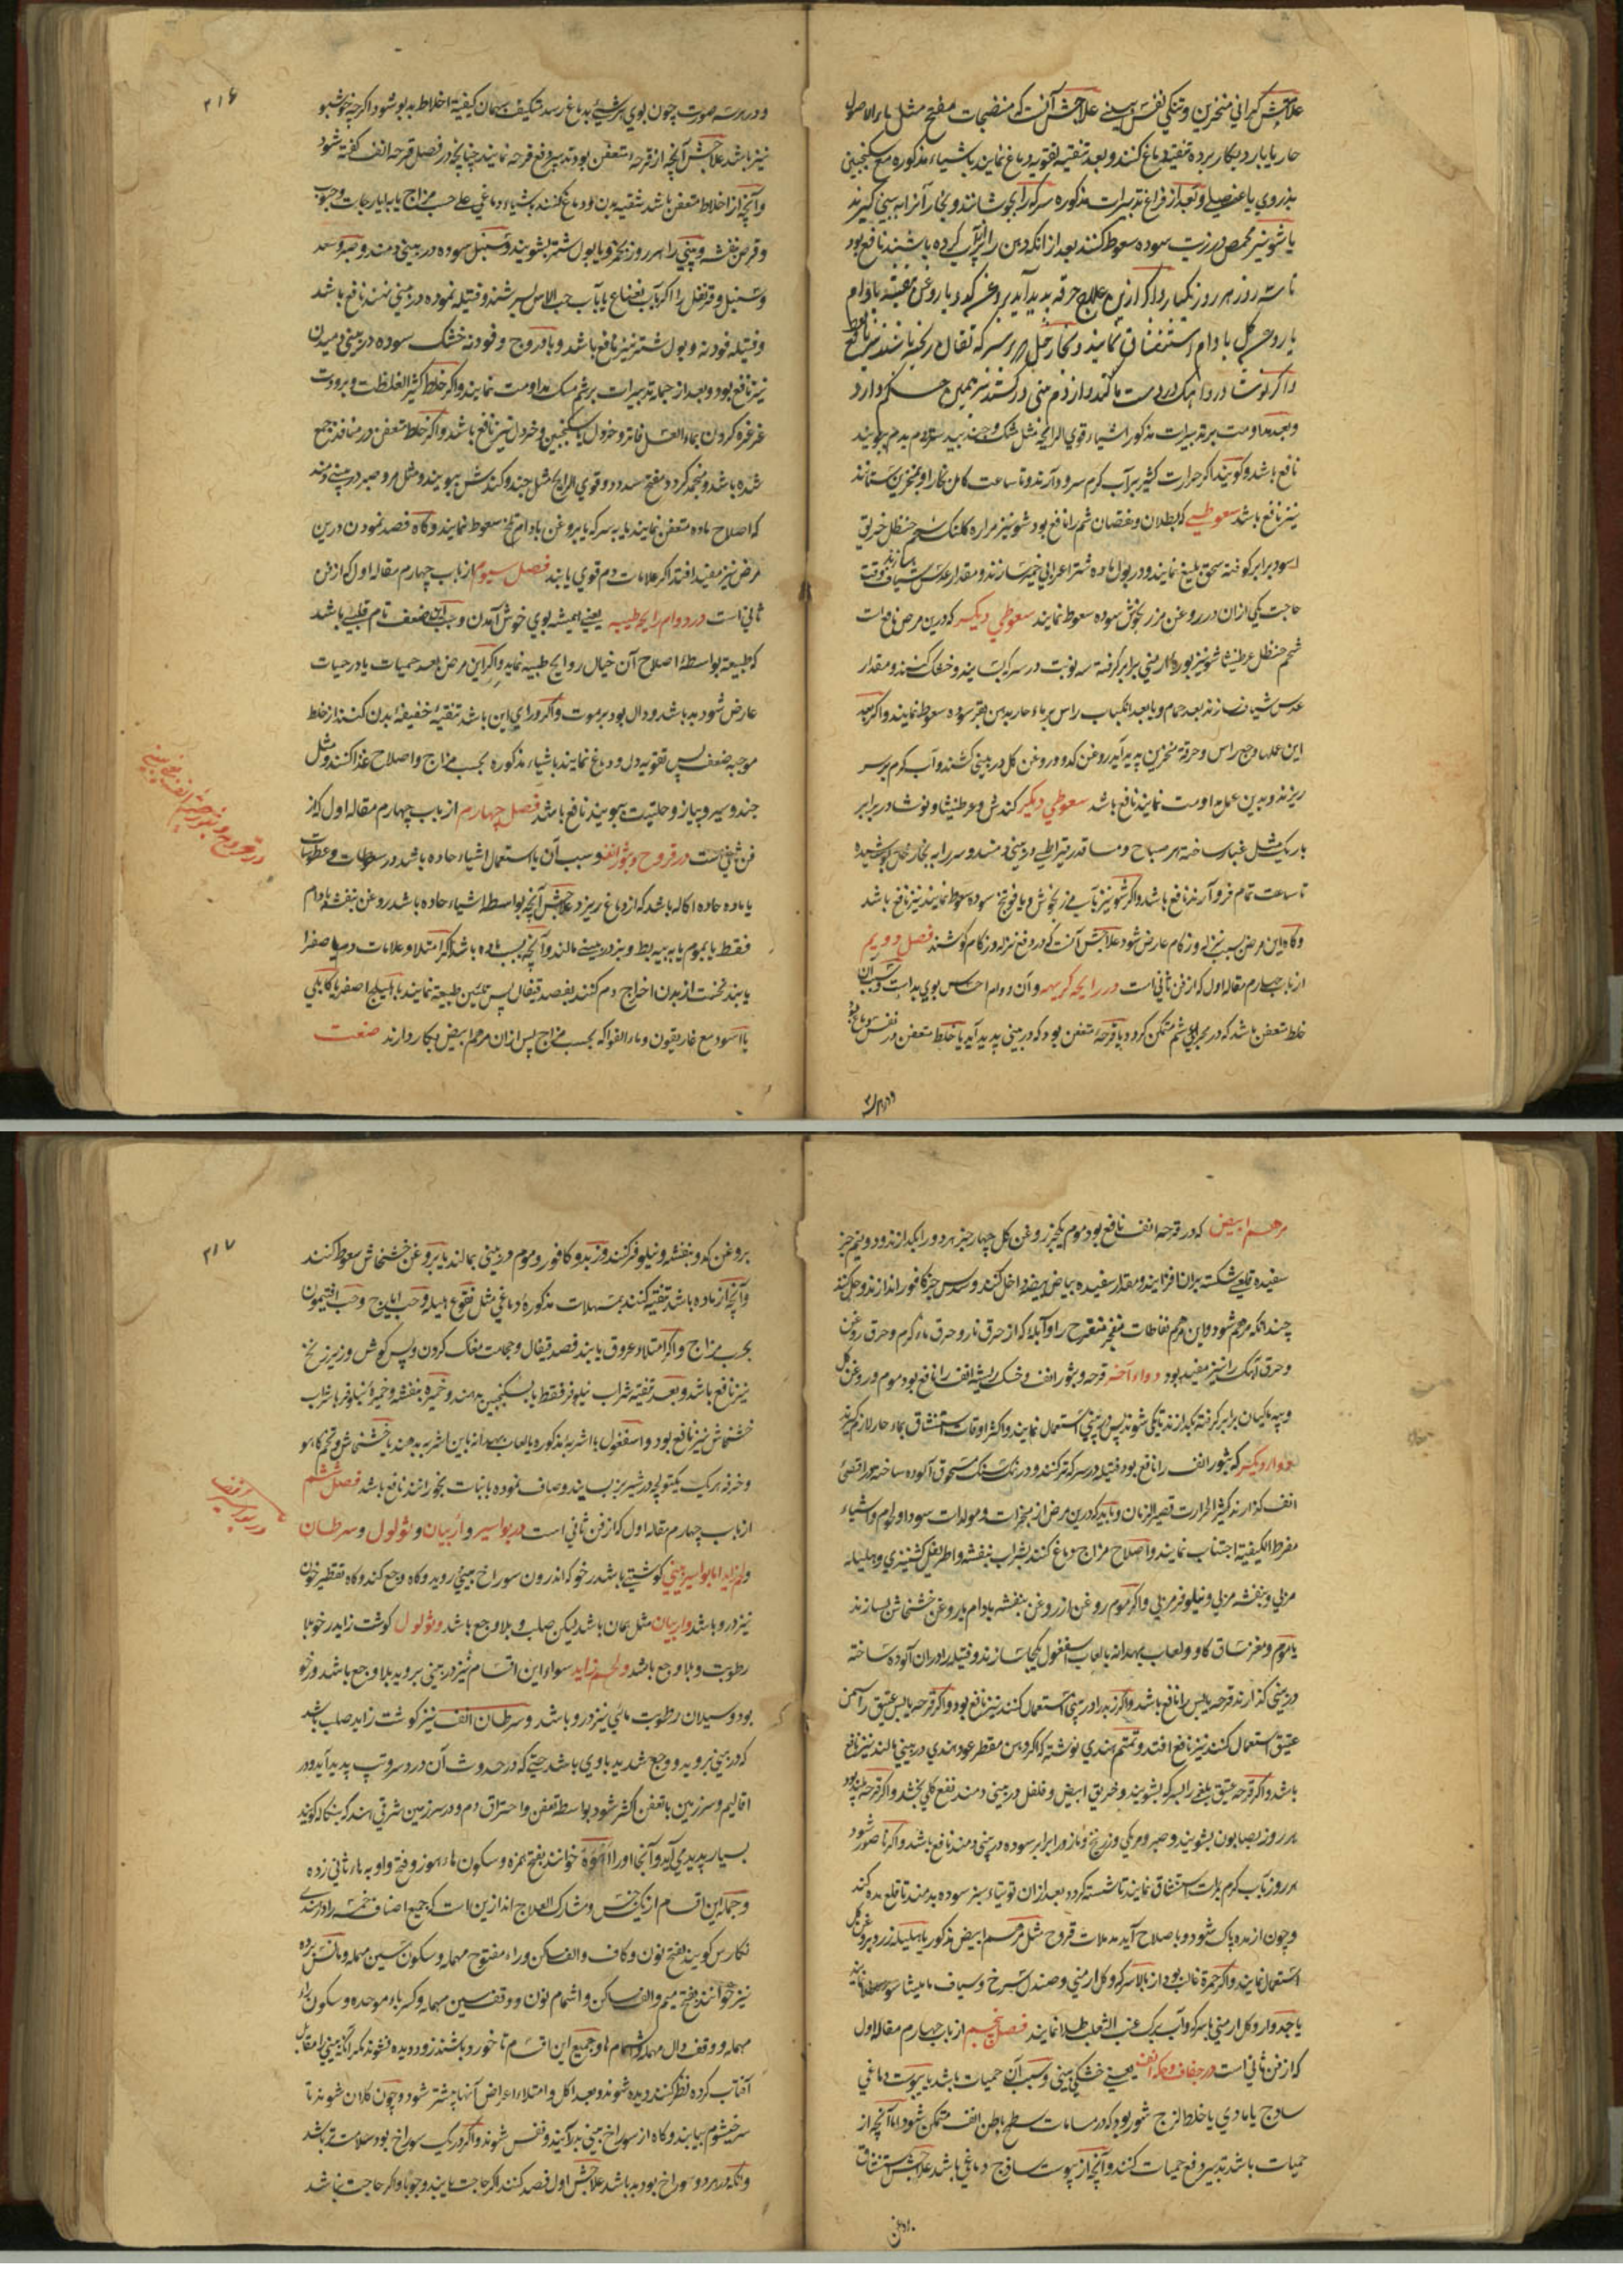 علاجش گرانی منخرین و تنگی نفس بینی علاجش آنست که منضجات مطبخ مثل ماء الاصول
حار یا بارد بکار برده تنقیه دماغ کنند و بعد تنقیه تقویه دماغ نمایند باشیاء مذکوره مع سکنجبین
بذوری یا عنصلی و بعد از فراغ تدبیرات مذکوره سرکه را بجوشانند و بخار آنرا به بینی گیرند
یا شونیز محمص در زیت سوده سعوط کنند بعد از انکه دهن را پر آب کرده باشند نافع بود
تا سه روز هر روز یکبار و اگر ازین علاج حرقه پدید آید بروغن کدو یا روغن بنفشه بادام
یا روغن گل بادام استنشاق نمایند و بخار خل
و بعد مداومت بر تدبیرات مذکور اشیاء قوی الرایحه مثل مشک و جندبیدستر دم بدم ببویند
نافع باشد و گویند اگر حرارت کثیر بر آب گرم سر و دآرند و تا ساعت کامل بخار او بمنخرین ستانند
نیز نافع باشد سعوطی که بطلان و نقصان شم را نافع بود شونیز مراره کلنک شحم حنظل خربق
اسود برابر کوفته سحق بلیغ نمایند و در بول ماده شتر اعرابی خمیر سازند و مقدار عدس شیاف وقت
حاجت یکی ازان در روغن مرزنجوش سوده سعوط نمایند سعوطی دیگر که درین مرض نافع است
شحم حنظل عرطنیثا شونیز بوره ارمنی برابر کرفته سه نوبت در سرکه بسایند و خشک کنند و مقدار
عدس شیاف سازند بعد حمام و یا بعد انکباب راس بر ماء حار بدهن سوده سعوط نمایند و اگر بعد
این عملها وجع راس و حرقه منخرین پدید آید روغن کدو و روغن گل در بینی کشند و آب گرم بر سر
ریزند و بدین عمل مداومت نمایند نافع باشد سعوطی دیگر کندش و عرطنیثا و نوشادر برابر
باریک مثل غبار ساخته هر صباح و مسا قدر قیراطی در بینی دمند و سر را به بخار خل پوشیده
تا ساعت تمام فرو آرند نافع باشد و اگر شونیز بآب مرزنجوش و یا فوتنج سوده سعوط نمایند نیز نافع باشد
و گاه این مرض بسبب نزله و زکام عارض شود علاجش آنست که در دفع نزله و زکام کوشند فصل دویم
از باب چهارم مقاله اول که از فن ثانی است در رایحه کریهه و آن دوام احساس بوی بد است و سبب آن
خلط متعفن باشد که در مجرای شم متمکن گردد یا قرحه متعفن بود که در بینی پدید آید یا خلط متعفن در نفس دماغ بود
و در هر سه
۲۱۶
و در هر سه صورت چون بوی هر شیء بدماغ رسد متکیف بهمان کیفیة اخلاط بد بو شود اگرچه خوشبو
نیز باشد علاجش آنچه از قرحه متعفن بود تدبیر دفع قرحه نمایند چنانچه در فصل قرحه انف گفته شود
و آنچه از اخلاط متعفن باشد تنقیه بدن و دماغ کنند باشیاء دماغی علی حسب مزاج یا بایارجات و حبوب
و قرص بنفشه و بینی را هر روز بخمر و یا بول شتر بشویند و سنبل سوده در بینی دمند و صبر و سعد
و سنبل و قرنفل را اگر بآب نعناع یا بآب حب الاس بسرشند و فتیله نموده در بینی نهند نافع باشد
و فتیله فودنه و بول شتر نیز نافع باشد و بادروج و فودنه خشک سوده در بینی دمیدن
نیز نافع بود و بعد از جمله تدبیرات بر شم مشک مداومت نمایند و اگر خلط کثیر الغلظت و برودت
غرغره کردن بماء العسل فاتر و خردل یا سکنجبین و خردل نیز نافع باشد و اگر خلط متعفن در منافذ جمع
شده باشد و منجمد گردد مفتح سدد و قوی الرایحه مثل جند و کندش ببویند و مثل مر و صبر در بینی دمند
که اصلاح ماده متعفن نمایند یا به سرکه یا بروغن بادام تلخ سعوط نمایند و گاه فصد نمودن درین
مرض نیز مفید افتد اگر علامات دم قوی یابند فصل سیوم از باب چهارم مقاله اول که از فن
ثانی است در دوام رایحه طیبه یعنی همیشه بوی خوش آمدن و سبب این ضعف تام قلبی باشد
که طبیعة بواسطه اصلاح آن خیال روایح طیبه نماید و اگر این مرض بعد حمیات یا در حمیات
عارض شود بد باشد و دال بود بر موت و اگر ورای این باشد تنقیه خفیفه بدن کنند از خلط
موجبه ضعف پس تقویه دل و دماغ نمایند باشیاء مذکوره بحسب مزاج و اصلاح غذا کنند و مثل
جند و سیر و پیاز و حلتیت ببویند نافع باشد فصل چهارم از باب چهارم مقاله اول که از
فن ثانی است در قروح و بثور انف و سبب آن یا استعمال اشیاء حاده باشد در سعوطات و عطوسات
یا ماده حاده اکاله باشد که از دماغ ریزد علاجش آنچه بواسطه اشیاء حاده باشد روغن بنفشه بادام
فقط یا بموم یا به پیه بط و بز در بینی مالند و آنچه بسبب ماده باشد اگر امتلا و علامات دم یا صفرا
یابند نخست از بدن اخراج دم کنند بفصد قیفال پس تلیین طبیعة نمایند با هلیلج اصفر یا کابلی
یا اسود مع غاریقون و ماء الفواکه بحسب مزاج پس ازان مرهم ابیض بکار دارند صنعت
در قروح و بثور
مرهم ابیض که در قرحه انف نافع بود موم یکجزء روغن گل چهار جزء هر دو را بگدازند و دو نیم جزء
سفیده قلعی شکسته بران افزایند و مقدار سفیده بیاض بیضه داخل کنند و سدس جزء کافور اندازند و حل کنند
چندانکه مرهم شود و این مرهم نفاطات منفجر متقرح را و آبله که از حرق نار و حرق ماء گرم و حرق روغن
و حرق آهک را نیز مفید بود دواء آخر قرحه و بثور انف و خشک ریشه انف را نافع بود موم و روغن گل
و پیه ماکیان برابر گرفته بگدازند تا یکی شوند پس در بینی استعمال نمایند و اکثر اوقات استنشاق بماء حار لازم گیرند
دواء دیگر که بثور انف را نافع بود فتیله در سرکه تر کنند و در نمک سنگ مسحوق آلوده ساخته در اقصی
انف گذارند کثیر الحرارت قصیر الزمان و باید که درین مرض از مبخرات و مولدات سودا و لحوم و اشیاء
مفرط الکیفیة اجتناب نمایند و اصلاح مزاج دماغ کنند بشراب بنفشه و اطریفل کشنیزی و هلیله
مربی و بنفشه مربی و نیلوفر مربی و اگر موم روغن از روغن بنفشه بادام یا روغن خشخاش بسازند
یا موم و مغز ساق گاو و لعاب بهدانه یا لعاب اسبغول یکجا سازند و فتیله را دران آلوده ساخته
در بینی گذارند قرحه یابس را نافع باشد و اگر زبد را در بینی استعمال کنند نیز نافع بود و اگر قرحه یابس عتیق را سمن
عتیق استعمال کنند نیز نافع افتد و تمتم هندی نوشته که اگر دهن مقطر عود هندی در بینی مالند نیز نافع
باشد و اگر قرحه عتیق بلغمی را بسرکه بشویند و خربق ابیض و فلفل در بینی دمند نفع کلی بخشد و اگر قرحه پلید بود
هر روز بصابون بشویند و صبر و مر مکی و زرنیخ و مازو برابر سوده در بینی دمند نافع باشد و اگر ناصور شود
هر روز بآب گرم بکرات استنشاق نمایند تا شسته گردد بعد ازان توتیاء سبز سوده بدمند تا قلع مده کند
و چون از مده پاک شود و باصلاح آید مدملات قروح مثل مرهم ابیض مذکور یا هلیله زرد بروغن گل
استعمال نمایند و اگر حمرة غالب بود از بالا سرکه و گل ارمنی و صندل سرخ و شیاف مامیثا سوده طلا نمایند
یا جدوار و گل ارمنی با سرکه و آب برگ عنب الثعلب طلا نمایند فصل پنجم از باب چهارم مقاله اول
که از فن ثانی است در جفاف و حکه انف یعنی خشکی بینی و سبب آن حمیات باشد یا یبوست دماغی
ساذج یا مادی یا خلط لزج شور بود که در مسامات سطح باطن انف متمکن شود اما آنچه از
حمیات باشد تدبیر دفع حمیات کنند و آنچه از یبوست ساذج دماغی باشد علاجش استنشاق
۲۱۷
بروغن کدو و بنفشه و نیلوفر کنند و زبد و کافور و موم در بینی بمالند یا بروغن خشخاش سعوط کنند
و آنچه از ماده باشد تنقیه کنند بمسهلات مذکوره دماغی مثل نقوع هلیله و حب ایارج و حب افتیمون
بحسب مزاج و اگر امتلاء عروق یابند فصد قیفال و حجامت مغاک گردن و پس گوش و زیر زنخ
نیز نافع باشد و بعد تنقیه شراب نیلوفر فقط یا سکنجبین بدهند و خمیره بنفشه و خمیره نیلوفر با شراب
خشخاش نیز نافع بود و اسفغول با اشربه مذکوره یا لعاب بهدانه باین اشربه بدهند یا خشخاش و تخم کاهو
و خرفه هر یک یکتوله در شیر بز بسایند و صاف نموده با نبات بخورانند نافع باشد فصل ششم
از باب چهارم مقاله اول که از فن ثانی است در بواسیر و اربیان و ثولول و سرطان
و لحم زاید اما بواسیر بینی گوشتی باشد رخو که اندرون سوراخ بینی روید و گاه وجع کند و گاه تقطیر خون
نیز درو باشد و اربیان مثل همان باشد لیکن صلب و بلا وجع باشد و ثولول گوشت زاید رخو بلا
رطوبت و بلا وجع باشد و لحم زاید سواء این اقسام نیز در بینی بروید بلا وجع باشد و رخو
بود و سیلان رطوبت مائی نیز درو باشد و سرطان انف نیز گوشت زاید صلب باشد
که در بینی بروید و وجع شدید با وی باشد حتی که در حدوث آن درد سر و تب پدید آید و در
اقالیم و سرزمین با تعفن اکثر شود بواسطه تعفن و احتراق دم و در سرزمین شرقی هند که بنگاله گویند
بسیار پدید می آید و آنجا او را اهوه خوانند بفتح همزه و سکون هاء هوز و فتح واو به هاء ثانی زده
و جمله این اقسام از یک جنس و مشارک العلاج اند ازین است که جمیع اصناف خمسه را در هندی
نکارس گویند بفتح نون و کاف و الف ساکن و راء مفتوح مهمله و سکون سین مهمله و مانس برده
نیز خوانند بفتح میم و الف ساکن و اشمام نون و وقف سین مهمله و کسر باء موحده و سکون راء
مهمله و وقف دال مهمله و اشمام ها و جمیع این اقسام تا خورد باشند زود دیده نشوند مگر آنکه بینی را مقابل
آفتاب کرده نظر کنند دیده شوند و بعد اکل و امتلاء اعراض آنها بیشتر شود و چون کلان شوند تا
سر خیشوم بیایند و گاه از سوراخ بینی بدر آیند و نفس شوند و اگر در یک سوراخ بود سلامت تر باشد
و آنکه در هر دو سوراخ بود بد باشد علاجش اول فصد کنند اگر حاجت یابند وجوبا و اگر حاجت نباشد